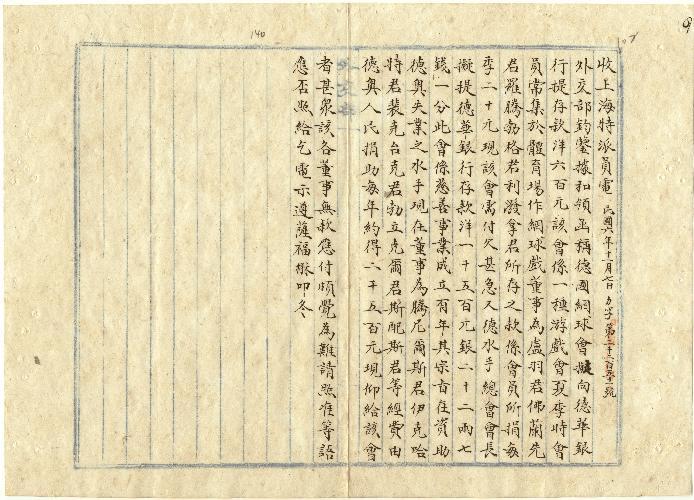 收上海特派員電 民國六年十一月七日
外交部鈞鑒據和領函稱德國網球會擬向德華銀
行提存款洋六百元該會係一種游戲會夏季時會
員常集於體育場作網球戲董事為盧羽君佛蘭先
君羅騰勃格君利潑拿君所存之款係會員所捐每
季二十元現該會需付欠甚急又德水手總會會長
擬提德華銀行存款洋一千五百元銀二十二兩七
錢一分此會係慈善事業成立有年其宗旨在資助
德奧失業之水手現在董事為騰尼爾斯君伊克哈
特君裴克台克君勃立克爾君斯配斯君等經費由
德奧人民捐助每年約得二千五百元現仰給該會
者甚衆該各董事無款應付頗覺為難請照准等語
應否照給乞電示遵薩福楙叩冬
140